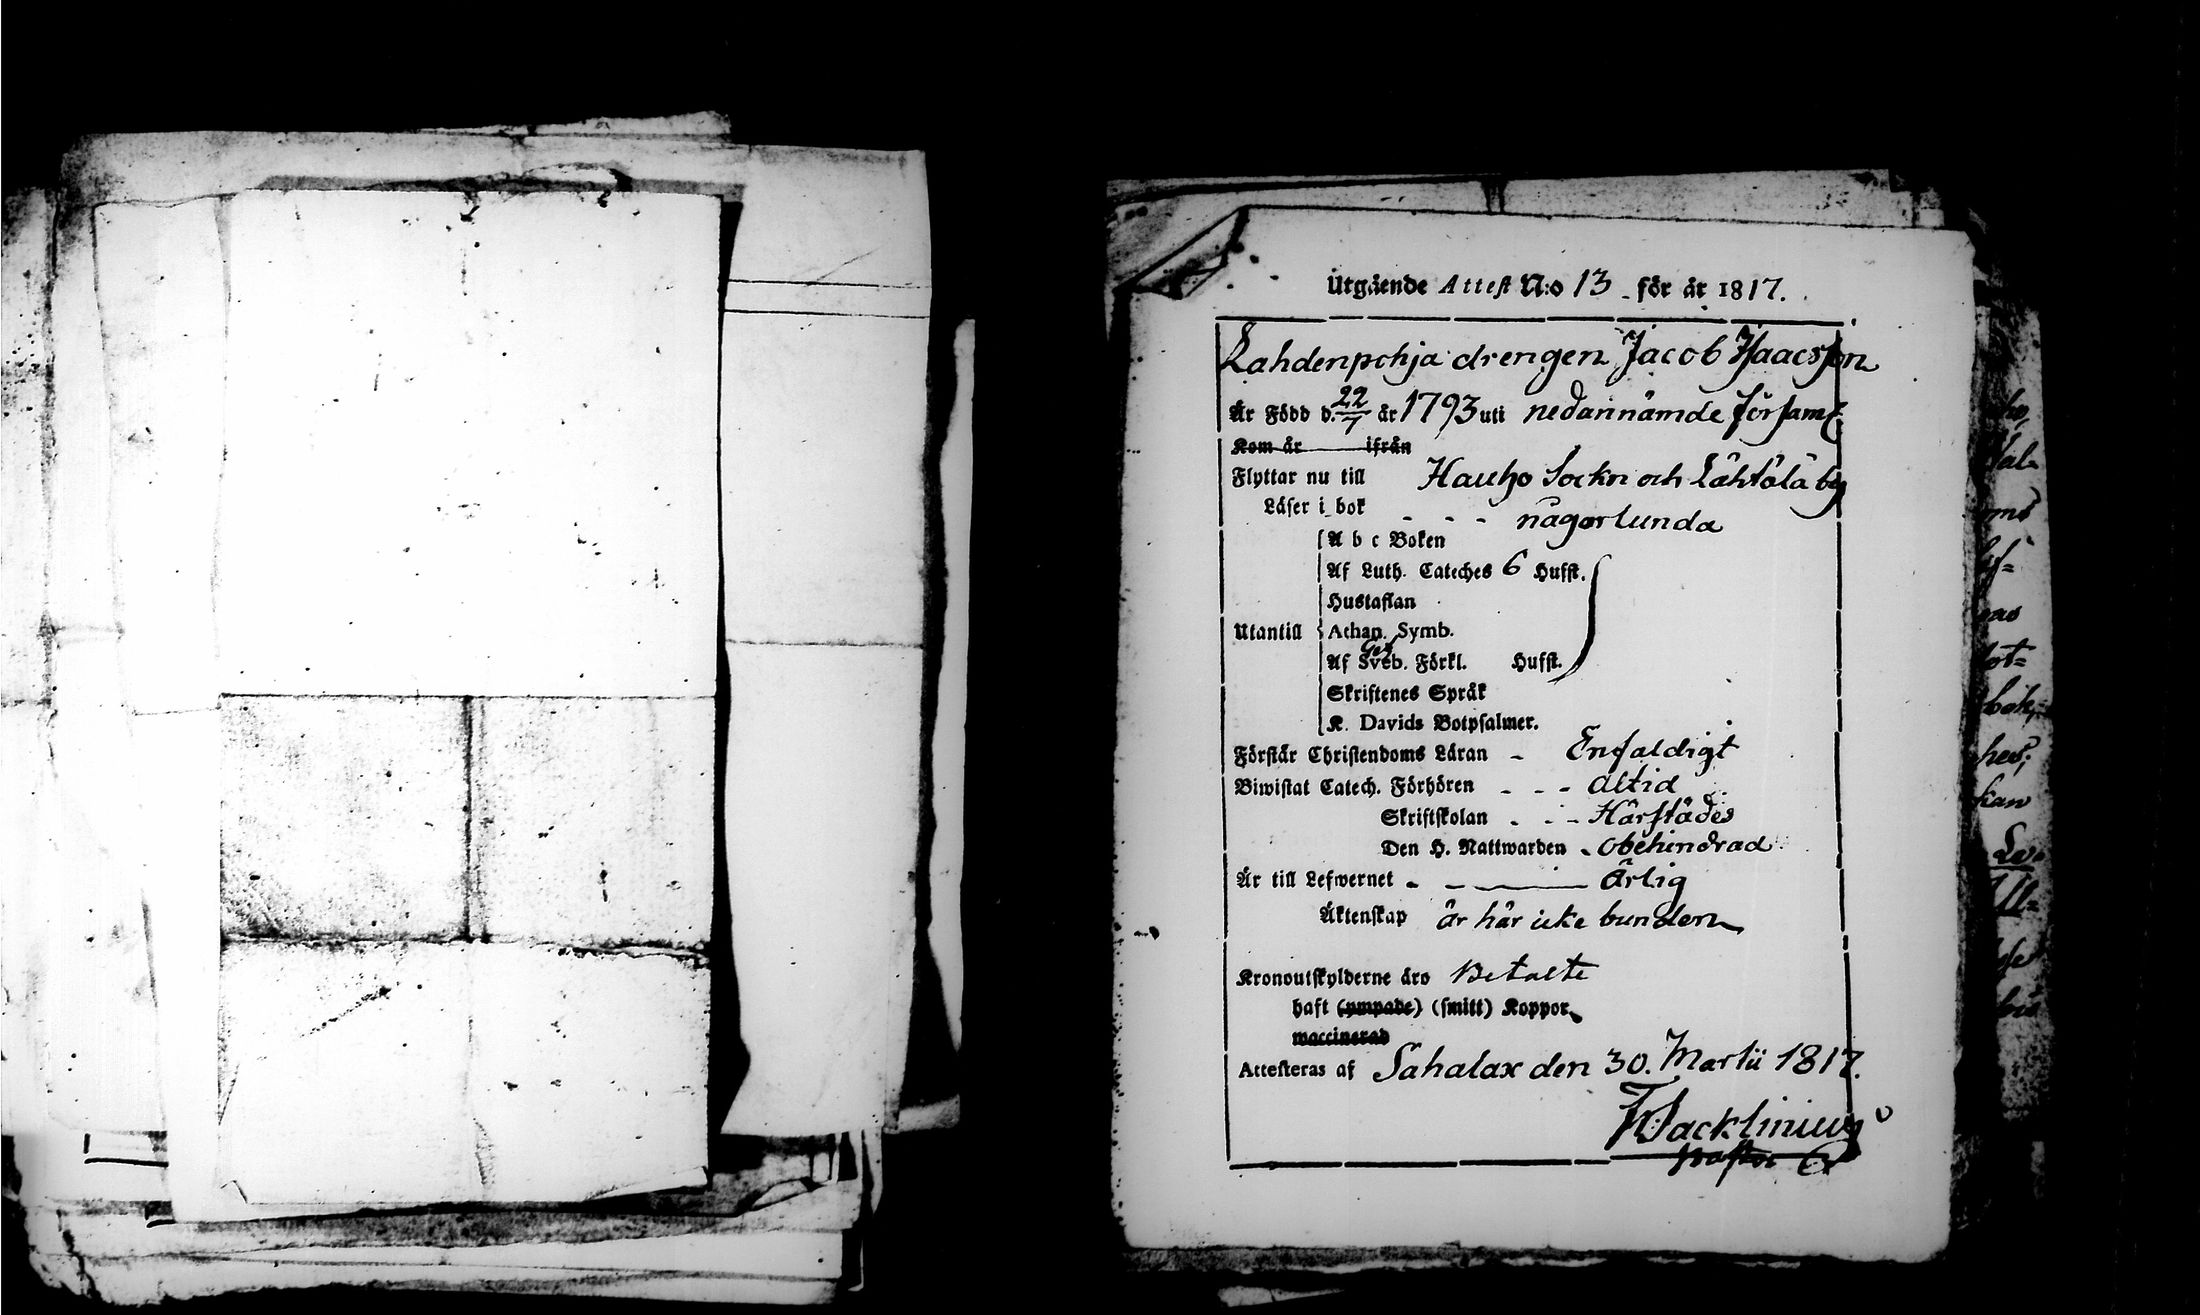 Utgående Attest N:o 13 för år 1817.
Lahdenpohja drengen Jacob Isaacsson
Är Född d. 22/7 år 1793 uti nedannämde församl
Kom år ifrån
Flyttar nu till Hauho Sockn och Lähtölä by
Läser i bok - - - någorlunda
A b c Boken
Af Luth. Cateches 6 Hufst.
Hustaflan
Utantill Athan. Symb.
Af Sveb. Förkl. Hufst.
Skriftenes Språk
K. Davids Botpsalmer.
Förstår Christendoms Läran - Enfaldigt
Biwistat Catech. Förhören - - - altid
Skriftskolan - - - Härstädes
Den H. Nattwarden - obehindrad
Är till Lefwernet - - ärlig
Äktenskap är här icke bunden
Kronoutskylderne äro Betalte
haft (ympade) (smitt) Koppor
waccinerad
Attesteras af Sahalax den 30. Martii 1817.
Wacklinius
Pastor